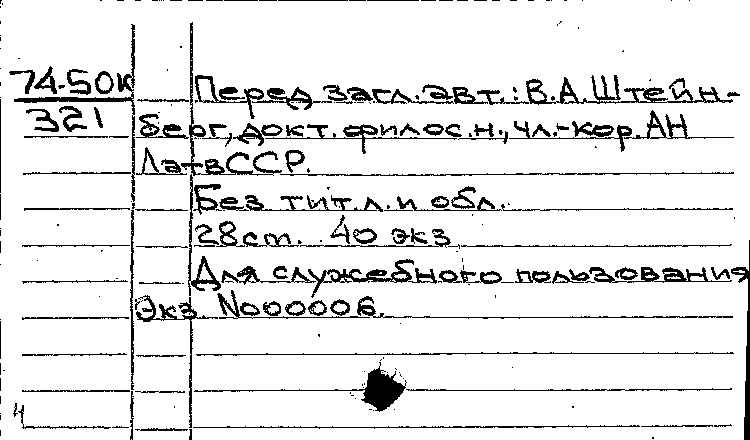 74-50к
321
Перед загл.авт.: В.А.Штейн-
берг, докт.филос.н., чл.-кор.АН
ЛатвССР.
Без тит.л.и обл.
28cm. 40 экз
Для служебного пользования
Экз. N000006.
4